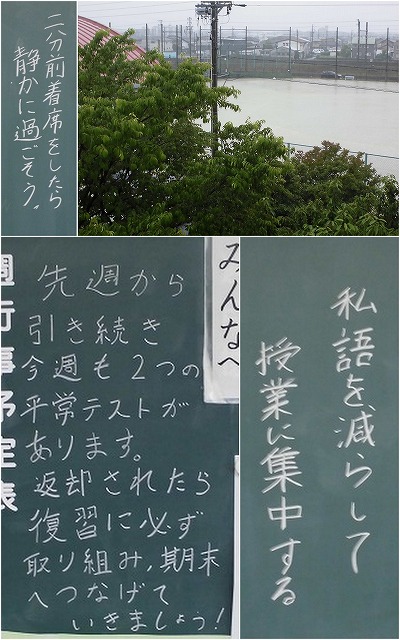 二分前着席をしたら
静かに過ごそう。
週行事予定表
みんなへ
先週から
引き続き
今週も2つの
平常テストが
あります。
返却されたら
復習に必ず
取り組み、期末
へつなげて
いきましょう!
私語を減らして
授業に集中する